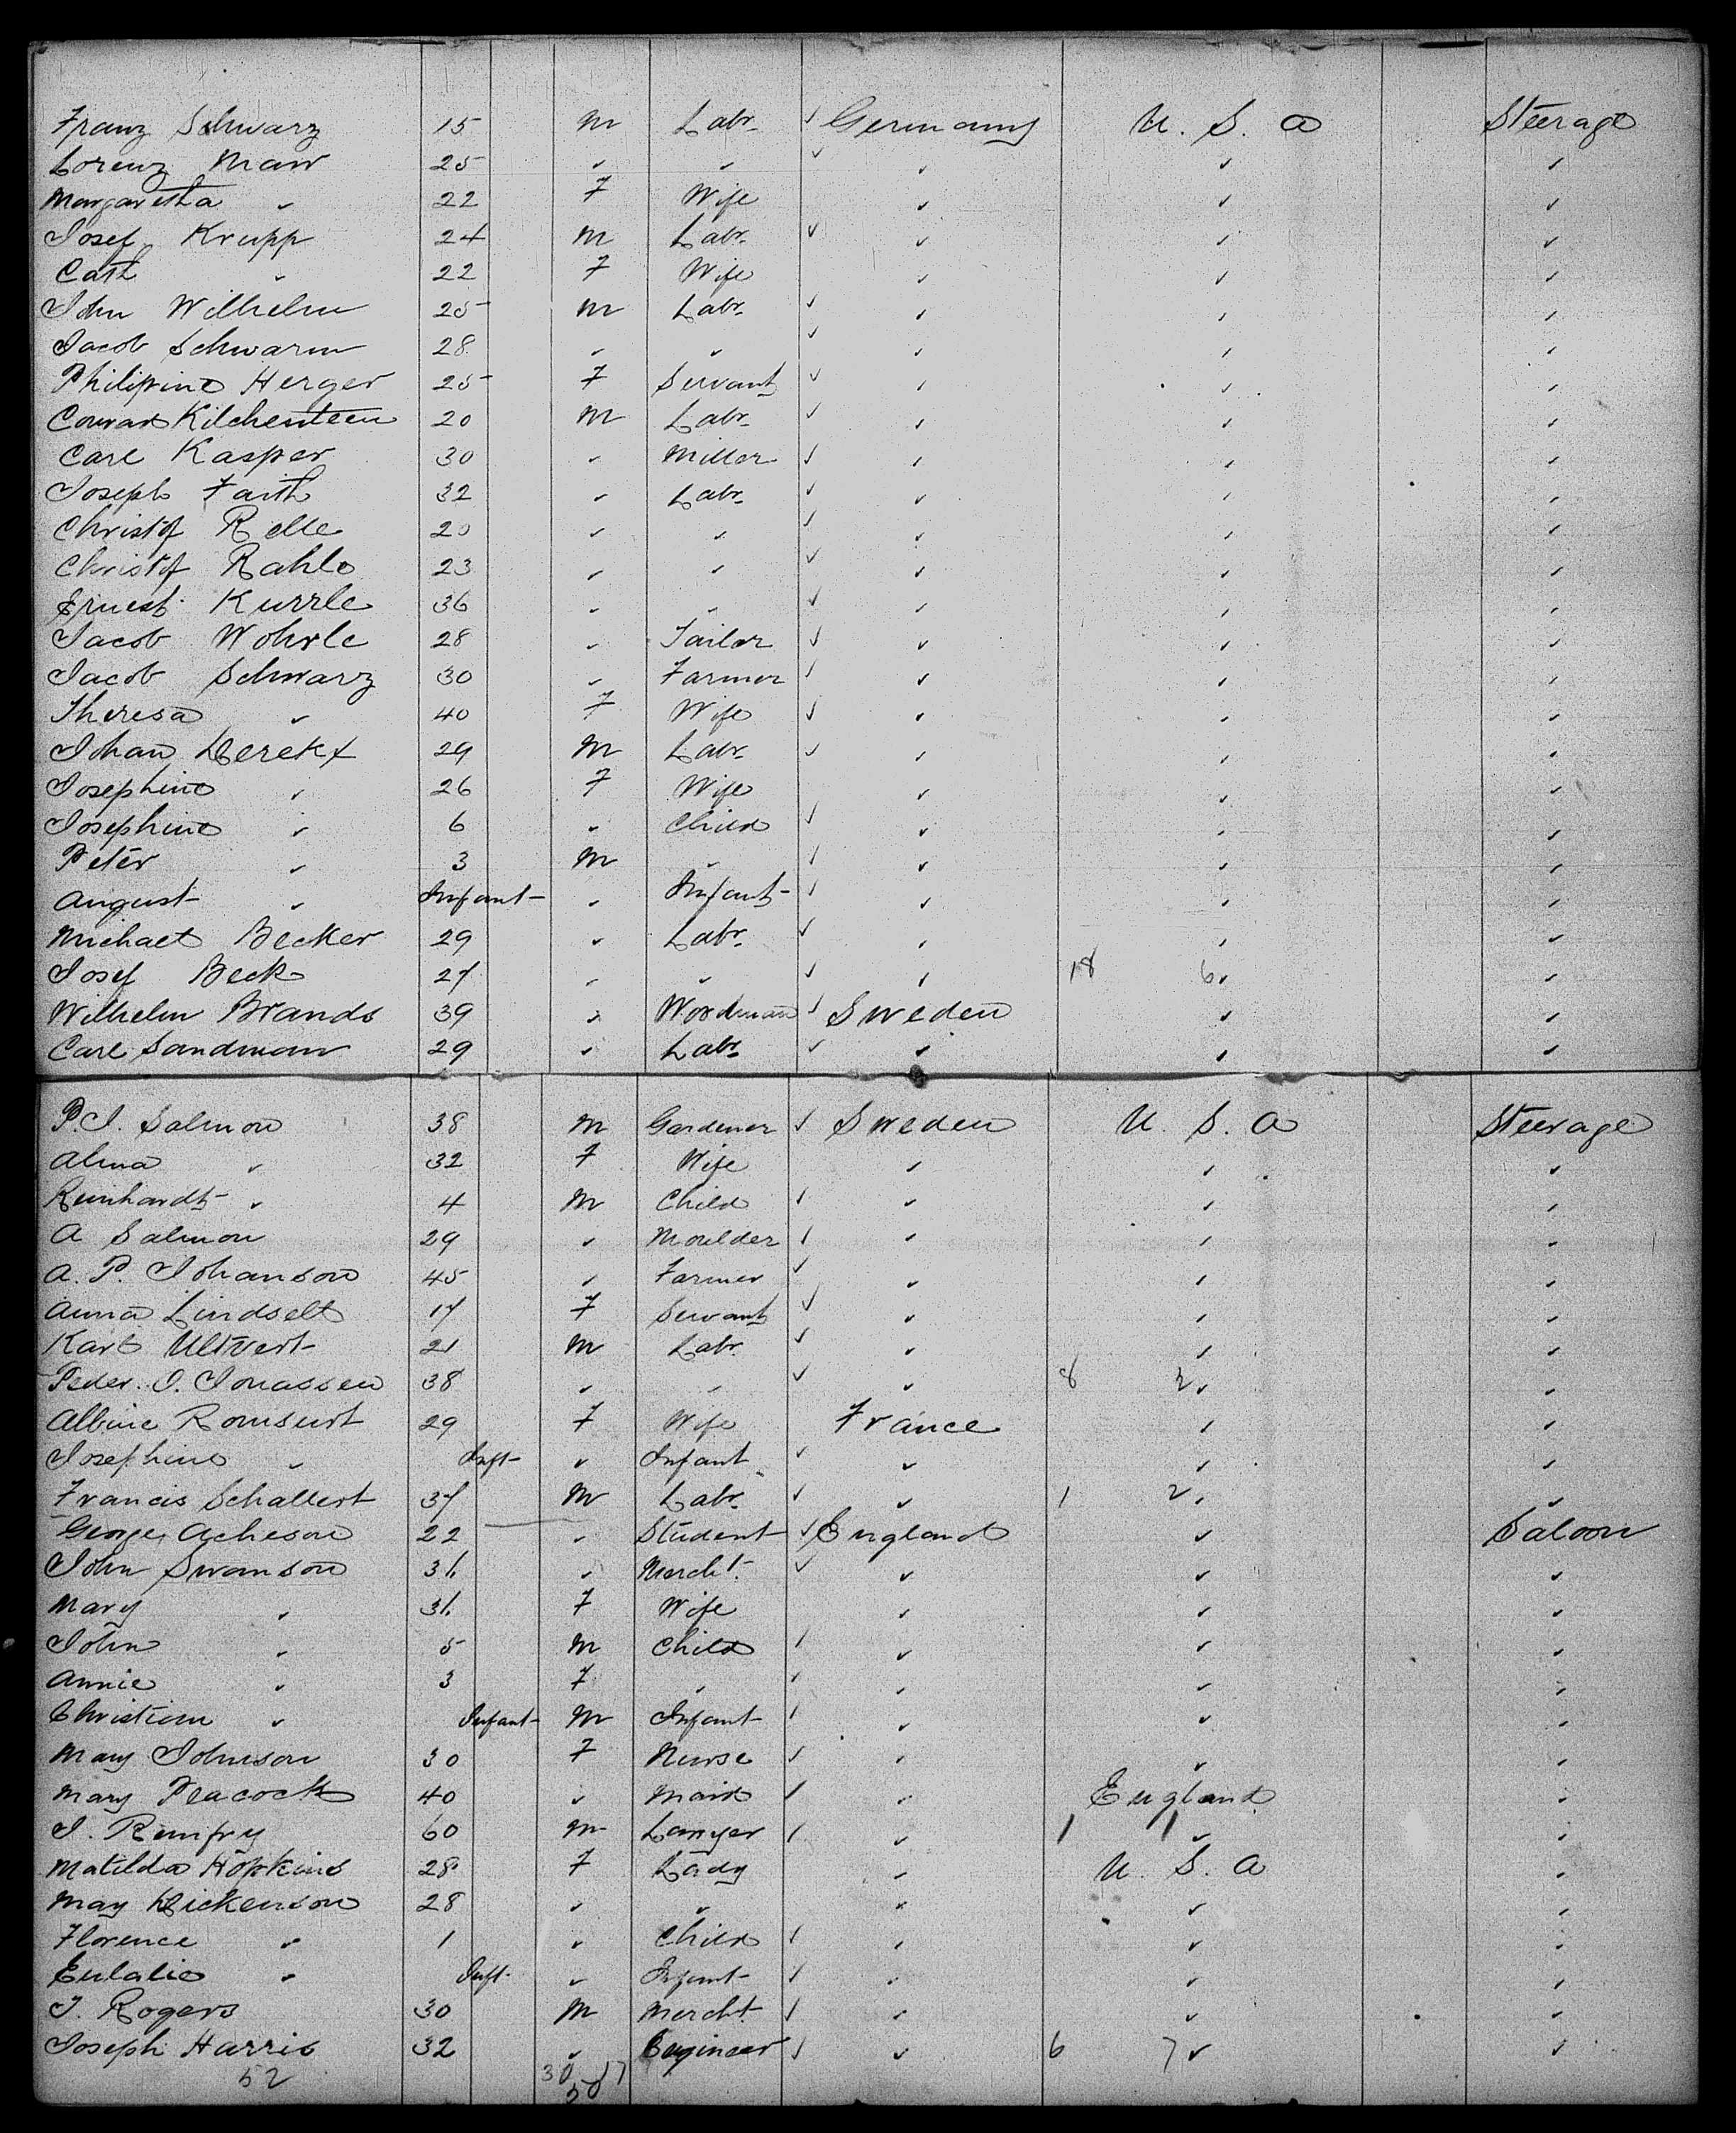 Franz Schwarz 15 M Labr ✓ Germany U. S. A Steerage
Lorenz Marr 25 " " ✓ " " "
Margaretha " 22 F Wife " " "
Josef Krupp 24 M Labr ✓ " " "
Cath " 22 F Wife " " "
John Wilhelm 25 M Labr ✓ " " "
Jacob Schwarm 28 " " ✓ " " "
Philipine Herger 25 F Servant ✓ " " "
Conrad Kilchenteen 20 M Labr ✓ " " "
Carl Kasper 30 " Miller ✓ " " "
Joseph Faith 32 " Labr ✓ " " "
Christof Relle 20 " " ✓ " " "
Christof Rahle 23 " " ✓ " " "
Ernest Kurrle 36 " " ✓ " " "
Jacob Wohrle 28 " Tailor ✓ " " "
Jacob Schwarz 30 " Farmer ✓ " " "
Theresa " 40 F Wife ✓ " " "
Johan Derekx 29 M Labr ✓ " " "
Josephine " 26 F Wife " " "
Josephine " 6 " Child ✓ " " "
Peter " 3 M " ✓ " " "
August " Infant " Infant ✓ " " "
Michael Becker 29 " Labr ✓ " " "
Josef Beck 27 " " ✓ " 18 6 " "
Wilhelm Brands 39 " Woodman ✓ Sweden " "
Carl Sandman 29 " Labr ✓ " " "
P. J. Salmon 38 M Gardener ✓ Sweden U. S. A Steerage
Alma " 32 F Wife " " "
Reinhardt " 4 M Child ✓ " " "
A Salmon 29 " Moulder ✓ " " "
A. P. Johanson 45 " Farmer ✓ " " "
Anna Lindselt 17 F Servant ✓ " " "
Karl Ultvert 21 M Labr ✓ " " "
Peder. J. Jonassen 38 " " ✓ " 8 2 " "
Albine Romsert 29 F Wife France " "
Josephine " Inft " Infant ✓ " " "
Francis Schallert 37 M Labr ✓ " 1 2 " "
George Acheson 22 " Student ✓ England " Saloon
John Swanson 31 " Mercht. ✓ " " "
Mary " 31 F Wife " " "
John " 5 M Child ✓ " " "
Annie " 3 F " ✓ " " "
Christian " Infant M Infant ✓ " " "
Mary Johnson 30 F Nurse ✓ " " "
Mary Peacock 40 " Maid ✓ " England "
J. Rimfry 60 M Lawyer ✓ " 1 1 " "
Matilda Hopkins 28 F Lady " U. S. A "
May Dickenson 28 " " " " "
Florence " 1 " Child ✓ " " "
Eulalie " Inft " Infant ✓ " " "
T. Rogers 30 M Mercht. ✓ " " "
Joseph Harris 32 " Engineer ✓ " 6 7 " "
52 30 17
50